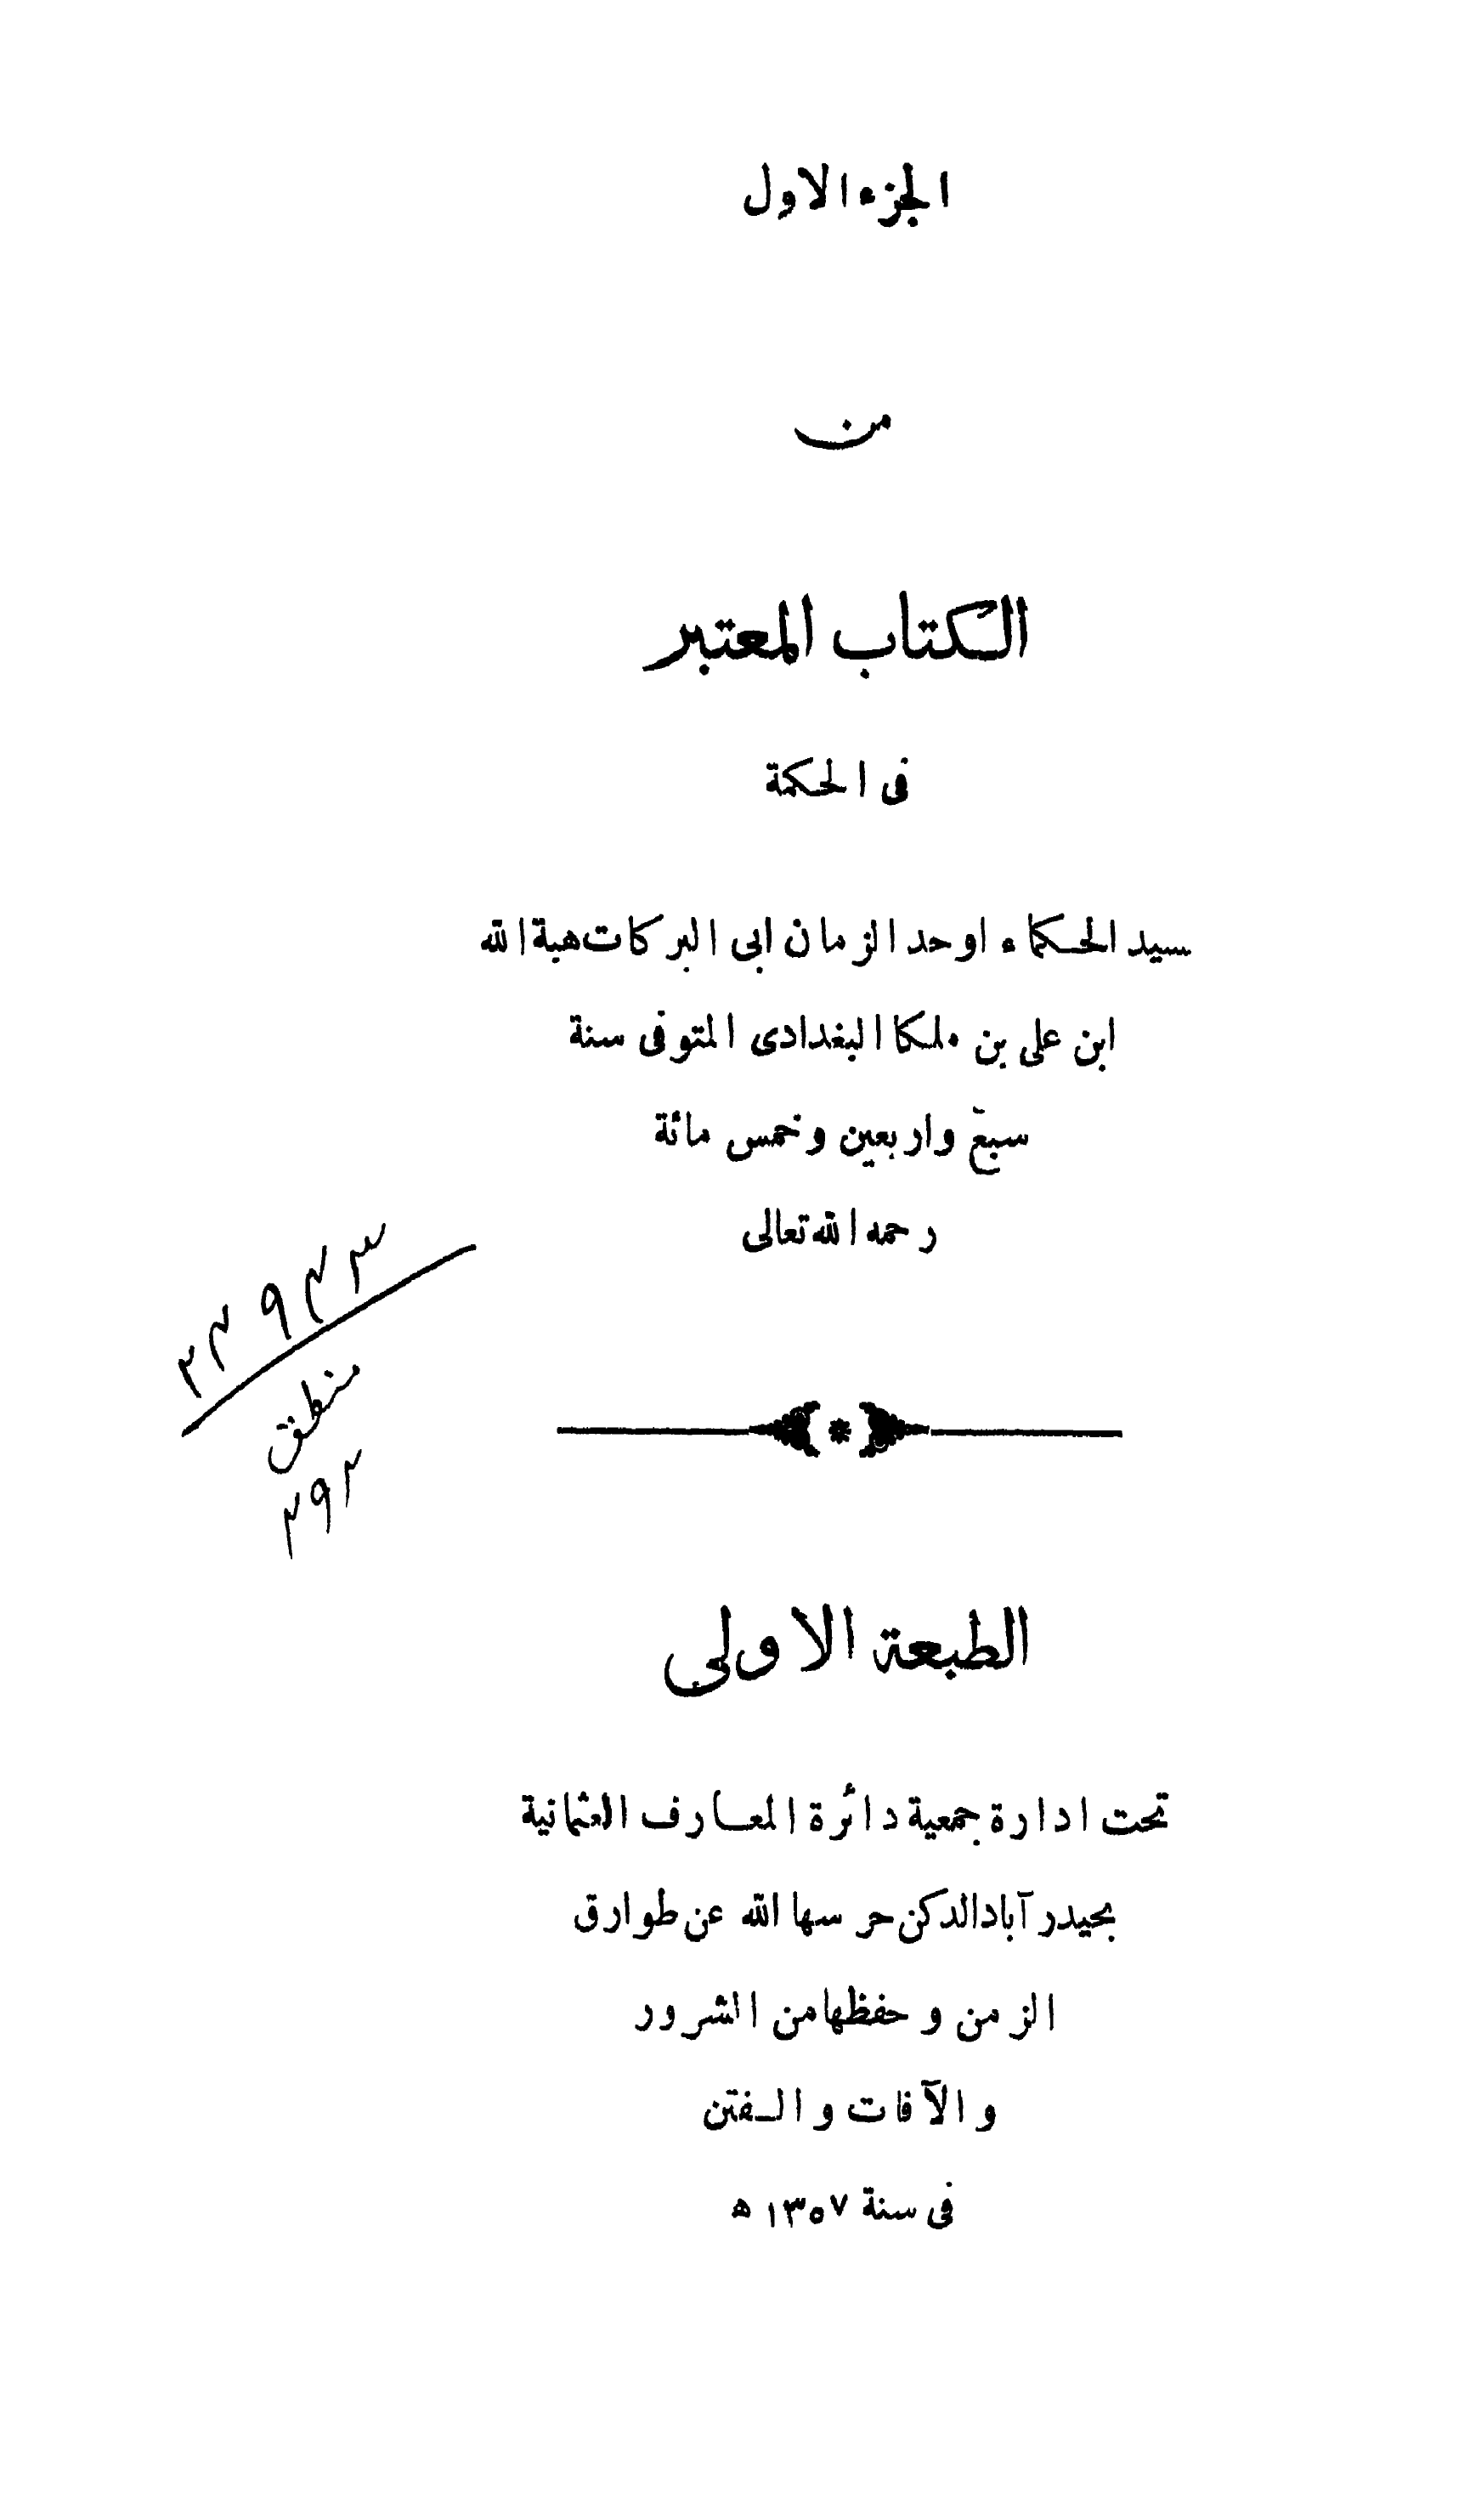 الجزء الاول
من
الكتاب المعتبر
فى الحكمة
سيد الحكماء اوحد الزمان ابى البركات هبة الله
ابن على بن ملكا البغدادى المتوفى سنة
سبع واربعين وخمس مائة
رحمه الله تعالى
منطق
٢٩٢
الطبعة الاولى
تحت ادارة جمعية دائرة المعارف العثمانية
بحيدر آباد الدكن حرسها الله عن طوارق
الزمن وحفظها من الشرور
والآفات والفتن
فى سنة ١٣٥٧ ه